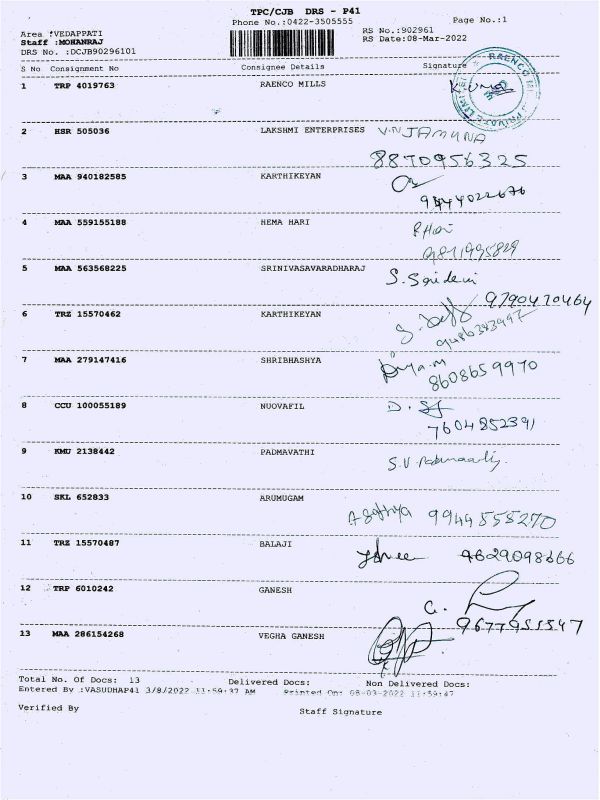 TPC/CJB DRS - P41
Phone No.:0422-3505555 Page No.:1
Area :VEDAPPATI RS No.:902961
Staff :MOHANRAJ RS Date:08-Mar-2022
DRS No. :DCJB90296101
S No Consignment No Consignee Details Signature
1 TRP 4019763 RAENCO MILLS
RAENCO PRIVATE LIMITED
2 HSR 505036 LAKSHMI ENTERPRISES V.N JAMUNA
8870956325
3 MAA 940182585 KARTHIKEYAN
9444022676
4 MAA 559155188 HEMA HARI P.Hari
9811995829
5 MAA 563568225 SRINIVASAVARADHARAJ S. Sridevi
9790470464
6 TRZ 15570462 KARTHIKEYAN
9486343997
7 MAA 279147416 SHRIBHASHYA
8608659970
8 CCU 100055189 NUOVAFIL D.
7604852391
9 KMU 2138442 PADMAVATHI S.V.
10 SKL 652833 ARUMUGAM
Agathya 9944555270
11 TRZ 15570487 BALAJI 9629098666
12 TRP 6010242 GANESH G.
9677955547
13 MAA 286154268 VEGHA GANESH
Total No. Of Docs: 13 Delivered Docs: Non Delivered Docs:
Entered By :VASUDHAP41 3/8/2022 11:59:37 AM Printed On: 08-03-2022 11:59:47
Verified By Staff Signature